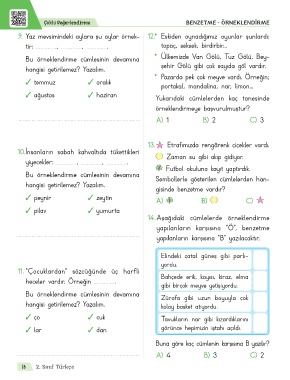 Çoklu Değerlendirme
BENZETME - ÖRNEKLENDİRME
9. Yaz mevsimindeki aylara şu aylar örnek-
tir: ............, ............, ............
Bu örneklendirme cümlesinin devamına
hangisi getirilemez? Yazalım.
✓ temmuz ✓ aralık
✓ ağustos ✓ haziran
10. İnsanların sabah kahvaltıda tükettikleri
yiyecekler: ............, ............, ............
Bu örneklendirme cümlesinin devamına
hangisi getirilemez? Yazalım.
✓ peynir ✓ zeytin
✓ pilav ✓ yumurta
11. "Çocuklardan" sözcüğünde üç harfli
heceler vardır. Örneğin ............
Bu örneklendirme cümlesinin devamına
hangisi getirilemez? Yazalım.
✓ ço ✓ cuk
✓ lar ✓ dan
12. * Eskiden oynadığımız oyunlar şunlardı:
topaç, seksek, birdirbir...
* Ülkemizde Van Gölü, Tuz Gölü, Bey-
şehir Gölü gibi çok sayıda göl vardır.
* Pazarda pek çok meyve vardı. Örneğin;
portakal, mandalina, nar, limon...
Yukarıdaki cümlelerden kaç tanesinde
örneklendirmeye başvurulmuştur?
A) 1 B) 2 C) 3
13. Etrafımızda rengârenk çiçekler vardı.
Zaman su gibi akıp gidiyor.
Futbol okuluna kayıt yaptırdık.
Sembollerle gösterilen cümlelerden han-
gisinde benzetme vardır?
A) B) C)
14. Aşağıdaki cümlelerde örneklendirme
yapılanların karşısına "Ö", benzetme
yapılanların karşısına "B" yazılacaktır.
Elindeki çatal güneş gibi parlı-
yordu.
Bahçede erik, kayısı, kiraz, elma
gibi birçok meyve yetişiyordu.
Zürafa gibi uzun boyuyla çok
kolay basket atıyordu.
Tavukların nar gibi kızardıklarını
görünce hepimizin iştahı açıldı.
Buna göre kaç cümlenin karşısına B yazılır?
A) 4 B) 3 C) 2
2. Sınıf Türkçe